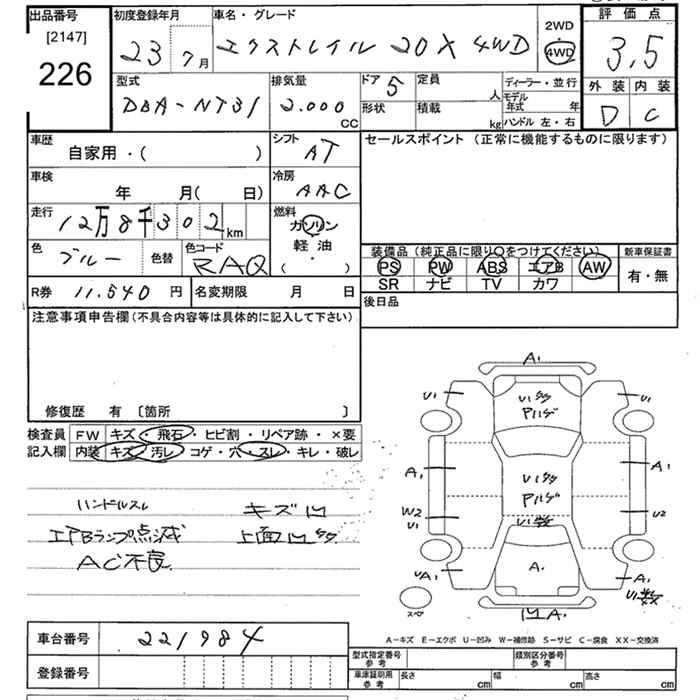 出品番号 初度登録年月 車名・グレード 2WD 評価点
[2147]
226 23 7月 エクストレイル 20X 4WD 4WD 3.5
型式 排気量 ドア 5 定員 人 ディーラー・並行 外装 内装
DBA-NT31 2.000 CC 形状 積載 kg モデル年式 年 D C
ハンドル 左・右
車歴 シフト セールスポイント (正常に機能するものに限ります)
自家用・( ) AT
車検 冷房
年 月( 日) AAC
走行 燃料
12万8千302km ガソリン
色 色コード 軽油 装備品 (純正品に限り○をつけてください) 新車保証書
ブルー 色替 RAQ (・) PS PW ABS エアB AW 有・無
SR ナビ TV カワ
R券 11.540円 名変期限 月 日 後日品
注意事項申告欄(不具合内容等は具体的に記入して下さい)
修復歴 有 〔箇所 〕
検査員 FW キズ・飛石・ヒビ割・リペア跡・×要
記入欄 内装 キズ・汚レ コゲ・穴・スレ・キレ・破レ
ハンドルスレ キズ凹
エアBランプ点滅 上面凹多
AC不良
A1
U1 U1
U1多
アルゲ
A1 A1
U1多
アルゲ
W2 U2
U1
U1数
UA1 A1
A.
U1数
スペア 凹A.
A-キズ E-エクボ U-凹み W-補修跡 S-サビ C-腐食 XX-交換済
車台番号 221984
型式指定番号 参考 類別区分番号 参考
登録番号 車庫証明用 参考 長さ cm 幅 cm 高さ cm